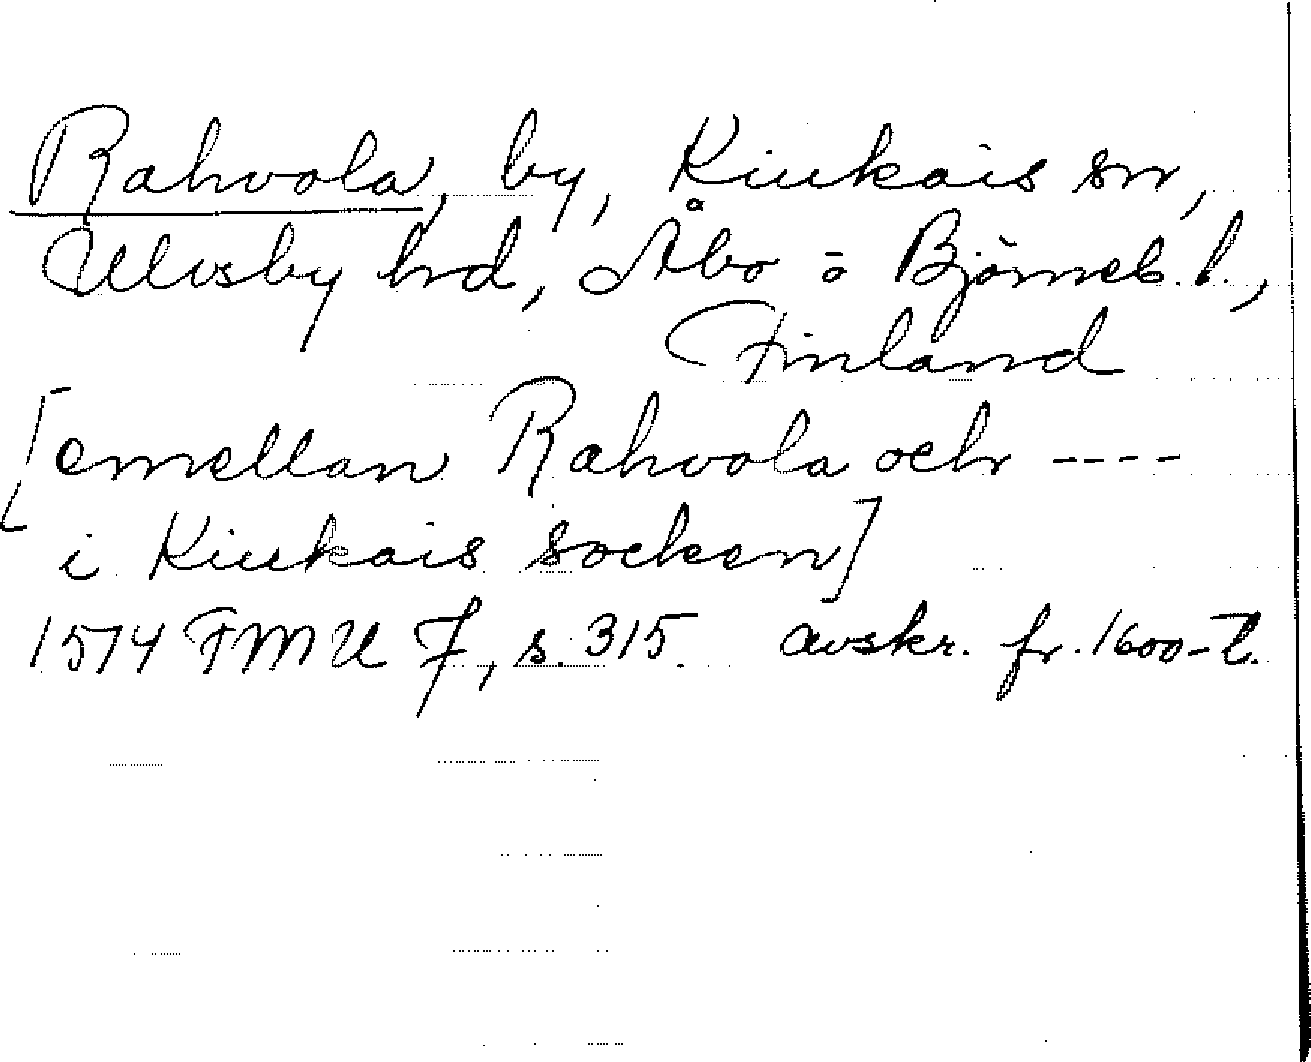 Rahvola, by, Kiukais sn,
Ulvsby hrd, Åbo o Björneb. l.,
Finland
[emellan Rahvola och ----
i Kiukais socken]
1514 FMU 7, s. 315. avskr. fr. 1600-t.